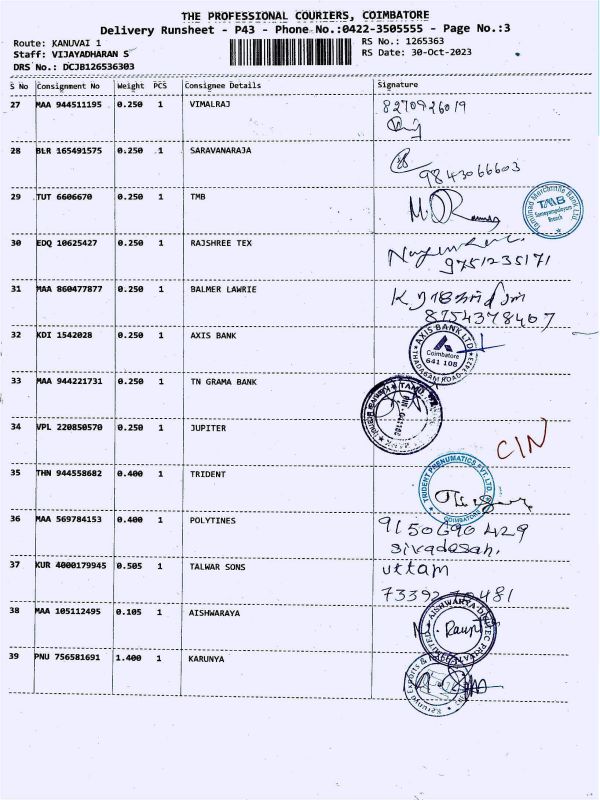 THE PROFESSIONAL COURIERS, COIMBATORE
Delivery Runsheet - P43 - Phone No.:0422-3505555 - Page No.:3
Route: KANUVAI 1
RS No.: 1265363
Staff: VIJAYADHARAN S
RS Date: 30-Oct-2023
DRS No.: DCJB126536303
S No Consignment No Weight PCS Consignee Details Signature
27 MAA 944511195 0.250 1 VIMALRAJ 8270926019
28 BLR 165491575 0.250 1 SARAVANARAJA 9843066603
29 TUT 6606670 0.250 1 TMB
Tamilnad Mercantile Bank Ltd
TMB
Branch
30 EDQ 10625427 0.250 1 RAJSHREE TEX
9751235171
31 MAA 860477877 0.250 1 BALMER LAWRIE
8754378407
32 KDI 1542028 0.250 1 AXIS BANK
AXIS BANK LTD
Coimbatore
641 108
THADAGAM ROAD
33 MAA 944221731 0.250 1 TN GRAMA BANK
34 VPL 220850570 0.250 1 JUPITER CIN
35 THN 944558682 0.400 1 TRIDENT
TRIDENT PNEUMATICS PVT. LTD.
COIMBATORE
36 MAA 569784153 0.400 1 POLYTINES 9150690429
sivadasan.
37 KUR 4000179945 0.505 1 TALWAR SONS uttam
38 MAA 105112495 0.105 1 AISHWARAYA
39 PNU 756581691 1.400 1 KARUNYA